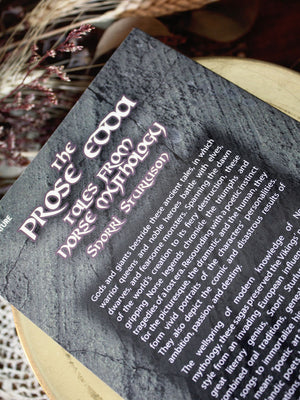 TURE
The
PROSE EDDA
TALES FROM
NORSE MYTHOLOGY
Snorri Sturluson
Gods and giants bestride these ancient tales, in which
warrior queens and noble heroes battle with elves,
dwarves, and fearsome monsters. Spanning the dawn
of the world's creation to its fiery destruction, these
gripping Norse legends chronicle the triumphs and
tragedies of a lost era. Resounding with a poetic instinct
for the picturesque, the dramatic, and the human, they
form vivid portraits of the characters' personalities.
They also depict the comic and disastrous results of
ambition, passion, and destiny.
The wellspring of modern knowledge of
mythology, these sagas preserved the Vikings'
style from an invading European influen
great literary genius, Snorri Stur
combined oral traditions, gen
songs to immortalize his
means "poetic art
landic poet